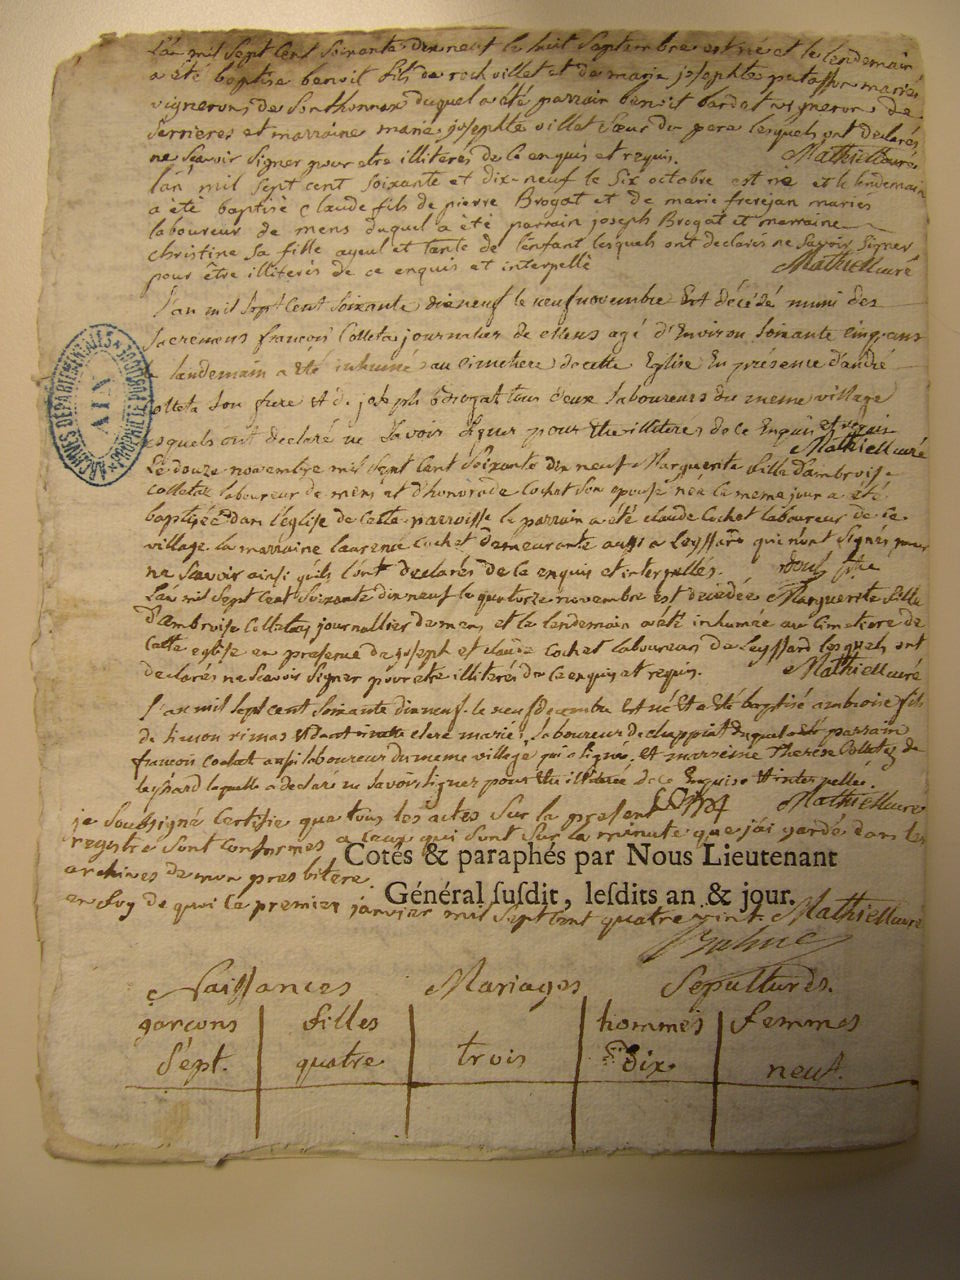 L'an mil sept cent soixante dix neuf le huit Septembre est né et le lendemain
a été baptisé benoit fils de roch villet et de marie josephte mariés
vignerons de Sonthonnax duquel a été parrain benoit bardet vigneron de
Serrieres et marraine marie josephte villet sœur du pere lesquels ont declarés
ne scavoir signer pour etre illiterés de ce enquis et requis. Mathieu curé
lan mil sept cent soixante et dix-neuf le six octobre est né et le lendemain
a été baptisé claude fils de pierre Brogat et de marie frerejan mariés
laboureur de mens duquel a été parrain joseph Brogat et marraine
christine sa fille ayeul et tante de l'enfant lesquels ont declarés ne savoir signer
pour être illiterés de ce enquis et interpellé Mathieu curé
l'an mil sept cent soixante dix neuf le neuf novembre Est décédé muni des
sacremens francois Colletaz journalier de mens agé d'Environ soixante cinq ans
landemain a été inhumé au cimetiere de cette Eglise En présence d'andré
olleta son frere et de joseph Brogat tous deux laboureurs du meme village
esquels ont declaré ne savoir signer pour etre illiteres de ce Enquis et requis
Mathieu curé
Le douze novembre mil sept cent soixante dix neuf Marguerite fille d'ambroise
colletaz laboureur de mens et d'honorade Cochet son épouse née le meme jour a été
baptisée dans l'église de cette parroisse le parrain a été claude Cochet laboureur de ce
village la marraine laurence Cochet demeurante aussi a Leyssard qui n'ont signés pour
ne scavoir ainsi qu'ils l'ont declarés de ce enquis et interpellés.
Lan mil sept cent soixante dix neuf le quatorze novembre est décédée Marguerite fille
d'ambroise Colletaz journallier de mens et le lendemain a été inhumée au cimetiere de
cette eglise en presence de joseph et claude Cochet laboureurs de Leyssard lesquels ont
declarés ne scavoir signer pour etre illiterés de ce enquis et requis. Mathieu curé
l'an mil sept cent soixante dix neuf le neuf decembre Est né Et a Eté baptisé ambroise fils
de simon rimas Et mariés, laboureurs de duquel a été parrain
francois Cochet aussi laboureur du meme village qui a signé, et marraine Therese Colletaz de
leyssard laquelle a declaré ne savoir signer pour etre illiterée de ce Enquise et interpellée.
Mathieu curé
je soussigné certifie que tous les actes sur la présent
registre sont conformes a ceux qui sont sur la minute que j'ai gardé dans les
archives de mon presbitere.
en foy de quoi ce premier janvier mil sept cent quatre vint. Mathieu curé
Cotés & paraphés par Nous Lieutenant
Général ſuſdit, leſdits an & jour.
Naissances Mariages Sepultures.
garçons filles hommes femmes
Sept. quatre trois dix. neuf.
ARCHIVES DÉPARTEMENTALES
AIN